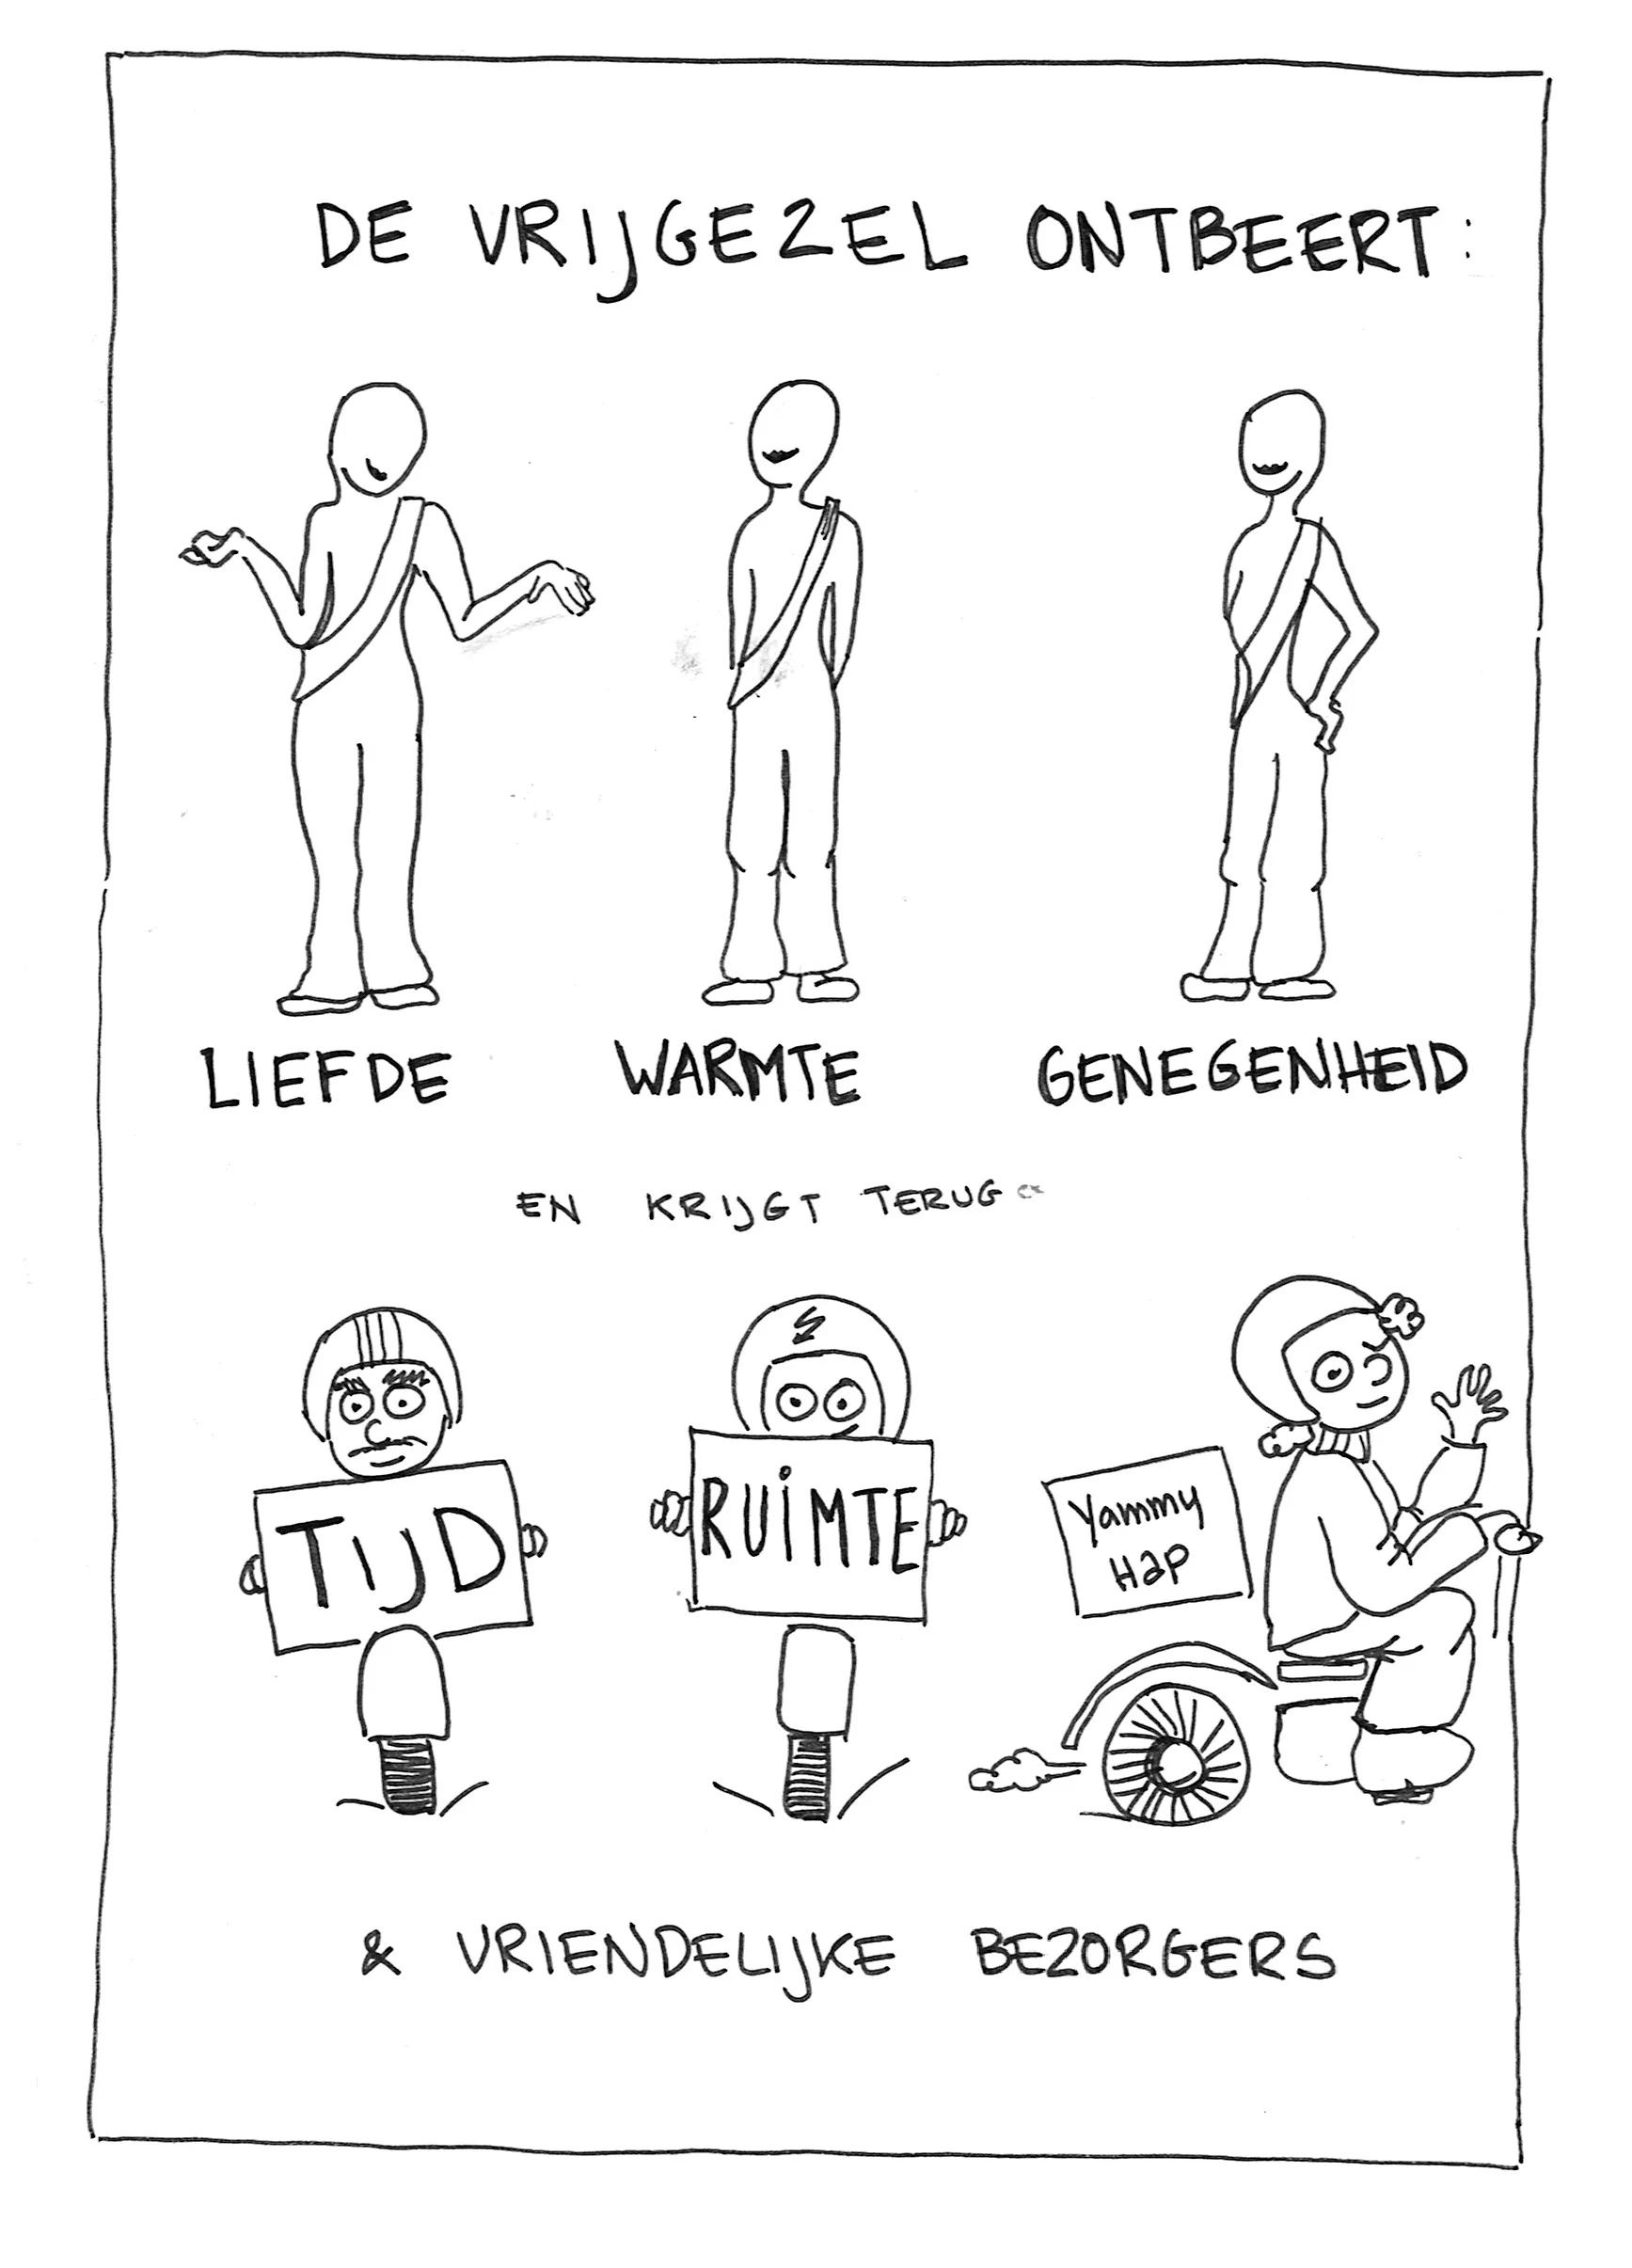 DE VRIJGEZEL ONTBEERT:
LIEFDE WARMTE GENEGENHEID
EN KRIJGT TERUG
TIJD
RUiMTE
Yammy
Hap
& VRIENDELIJKE BEZORGERS